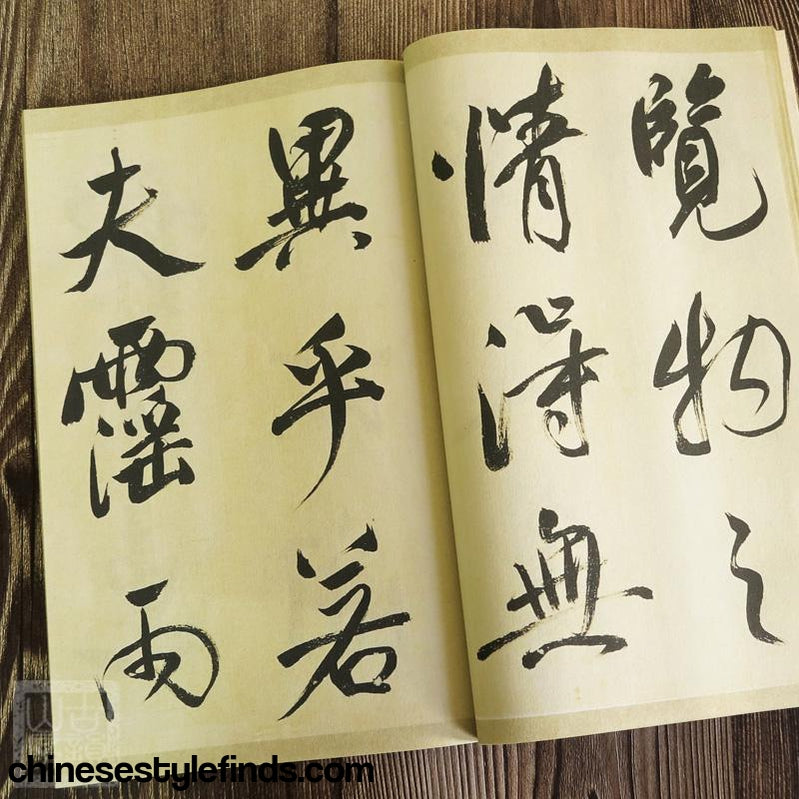 覽物之
情得無
異乎若
夫霪雨
chinesestylefinds.com